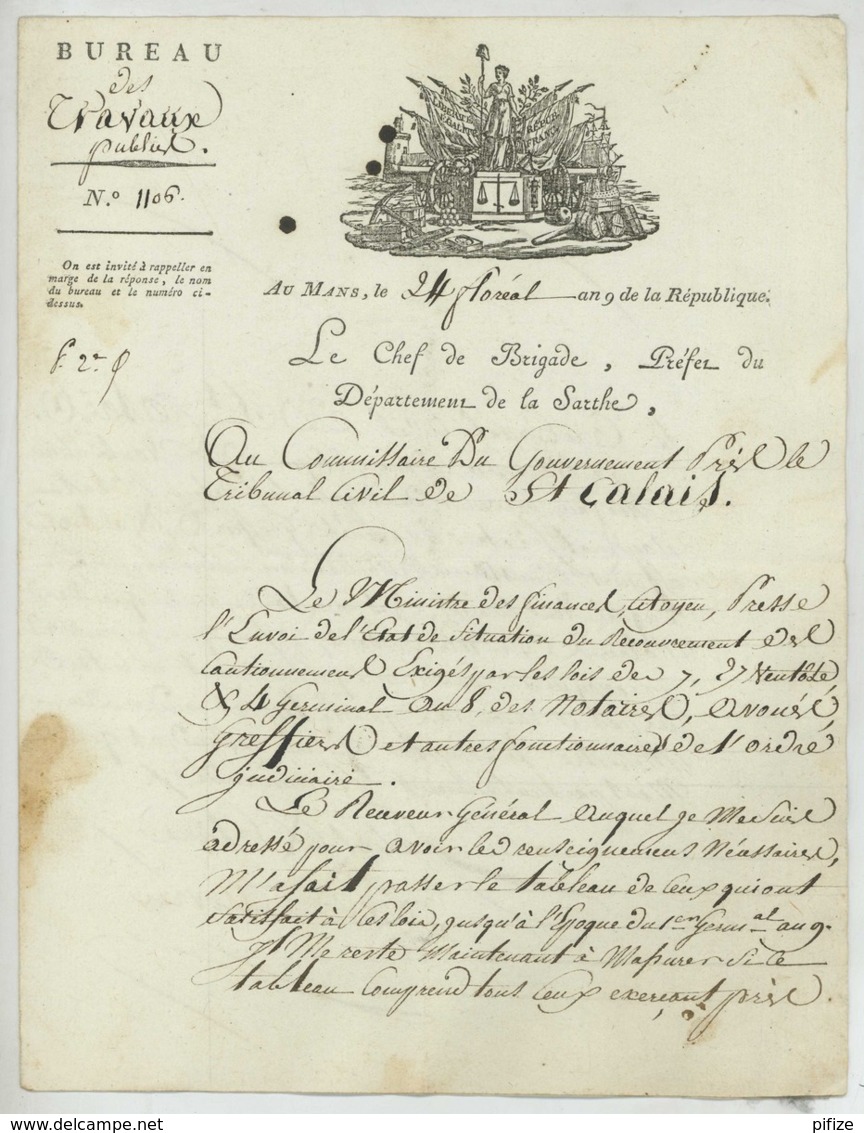 BUREAU
des
Travaux
publics.
N.º 1106.
On est invité à rappeller en
marge de la réponse, le nom
du bureau et le numéro ci-
dessus.
LIBERTÉ
ÉGALITÉ
RÉPUB.
FRANÇ.
AU MANS, le 24 floréal an 9 de la République.
Le Chef de Brigade, Préfet du
Département de la Sarthe,
Au Commissaire Du Gouvernement Près le
Tribunal Civil de St Calais.
Le Ministre des finances, Citoyen, Presse
l'Envoi de l'Etat de Situation du Recouvrement des
Cautionnemens Exigés par les lois de 7, 27 Ventôse,
& 4 Germinal an 8, des Notaires, avoués,
Greffiers et autres fonctionnaires de l'ordre
judiciaire.
Le Receveur Général auquel je me suis
adressé pour avoir les renseignemens Nécessaires,
M'a fait passer le tableau de Ceux qui ont
satisfait à Ces lois, jusqu'à l'Epoque du 1er Germal an 9.
Il Me reste Maintenant à M'assurer si Ce
tableau Comprend tous Ceux exerçant près
pifize